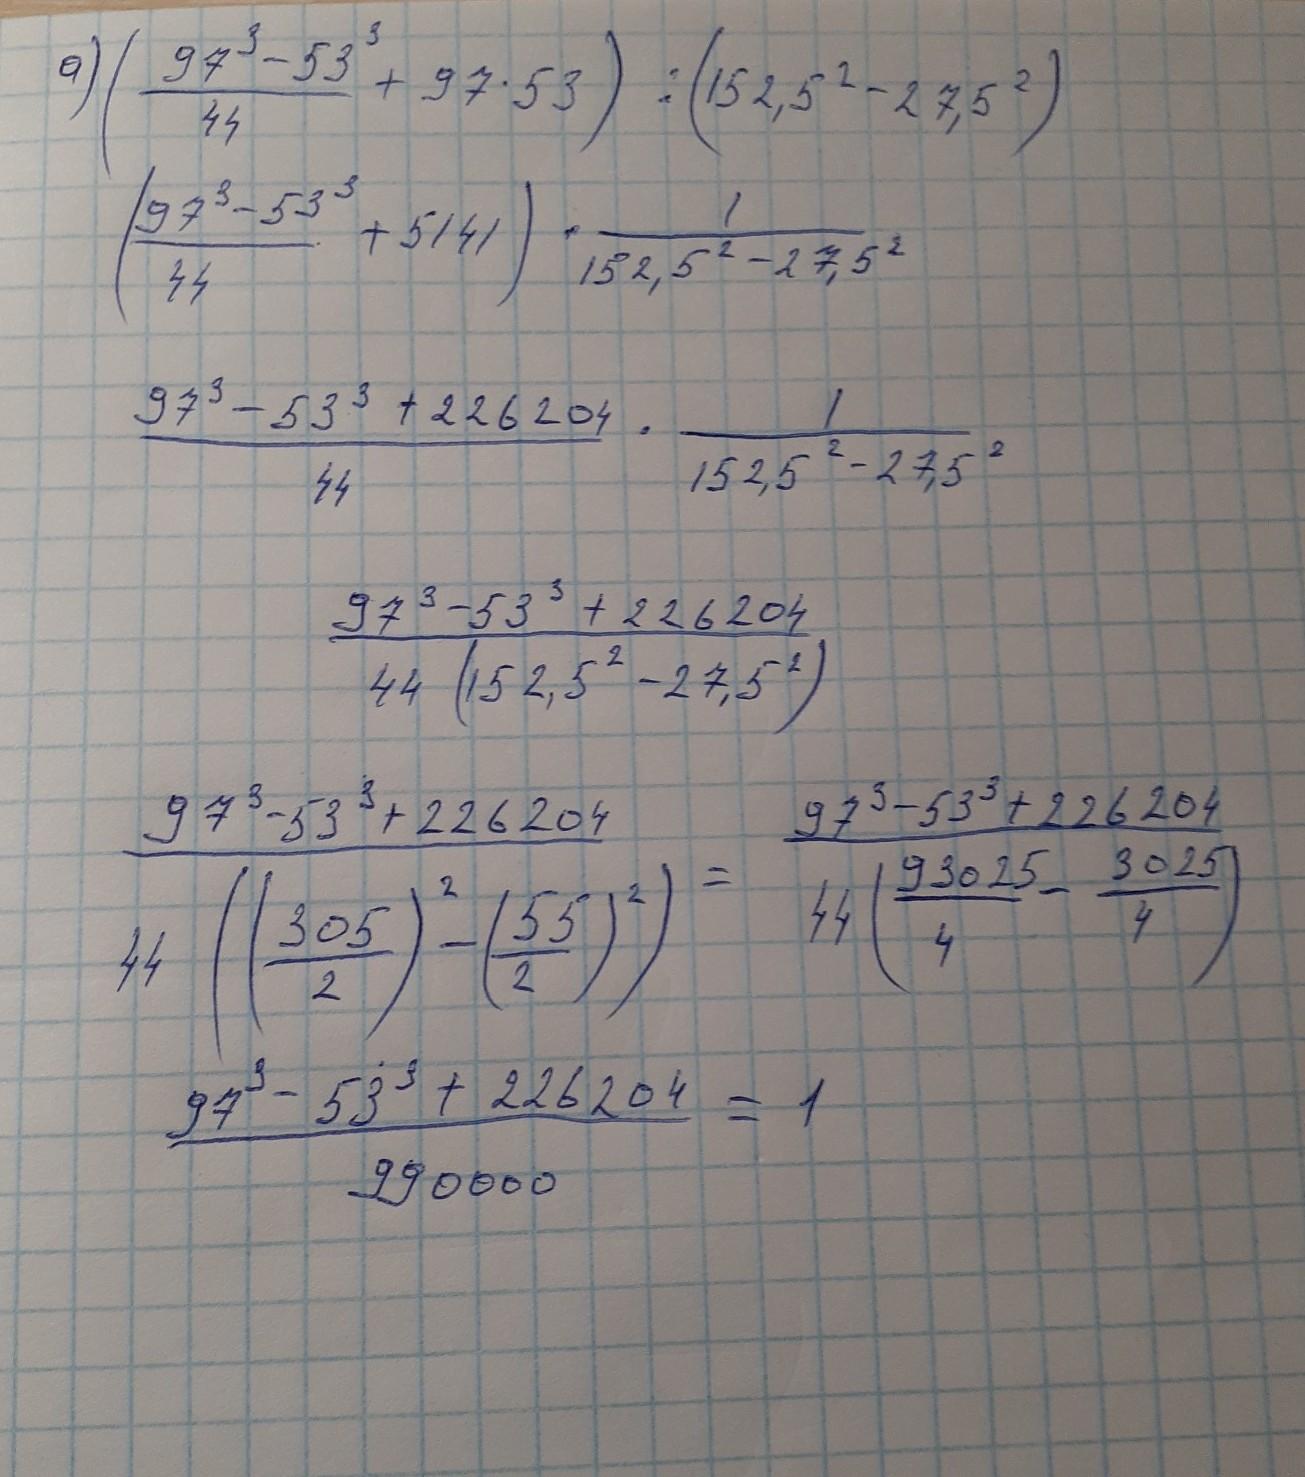 а) ( (97³ - 53³)/44 + 97 · 53 ) : (152,5² - 27,5²)
( (97³ - 53³)/44 + 5141 ) · 1/(152,5² - 27,5²)
(97³ - 53³ + 226204)/44 · 1/(152,5² - 27,5²)
(97³ - 53³ + 226204)/(44 (152,5² - 27,5²))
(97³ - 53³ + 226204)/(44 ((305/2)² - (55/2)²)) = (97³ - 53³ + 226204)/(44 (93025/4 - 3025/4))
(97³ - 53³ + 226204)/990000 = 1